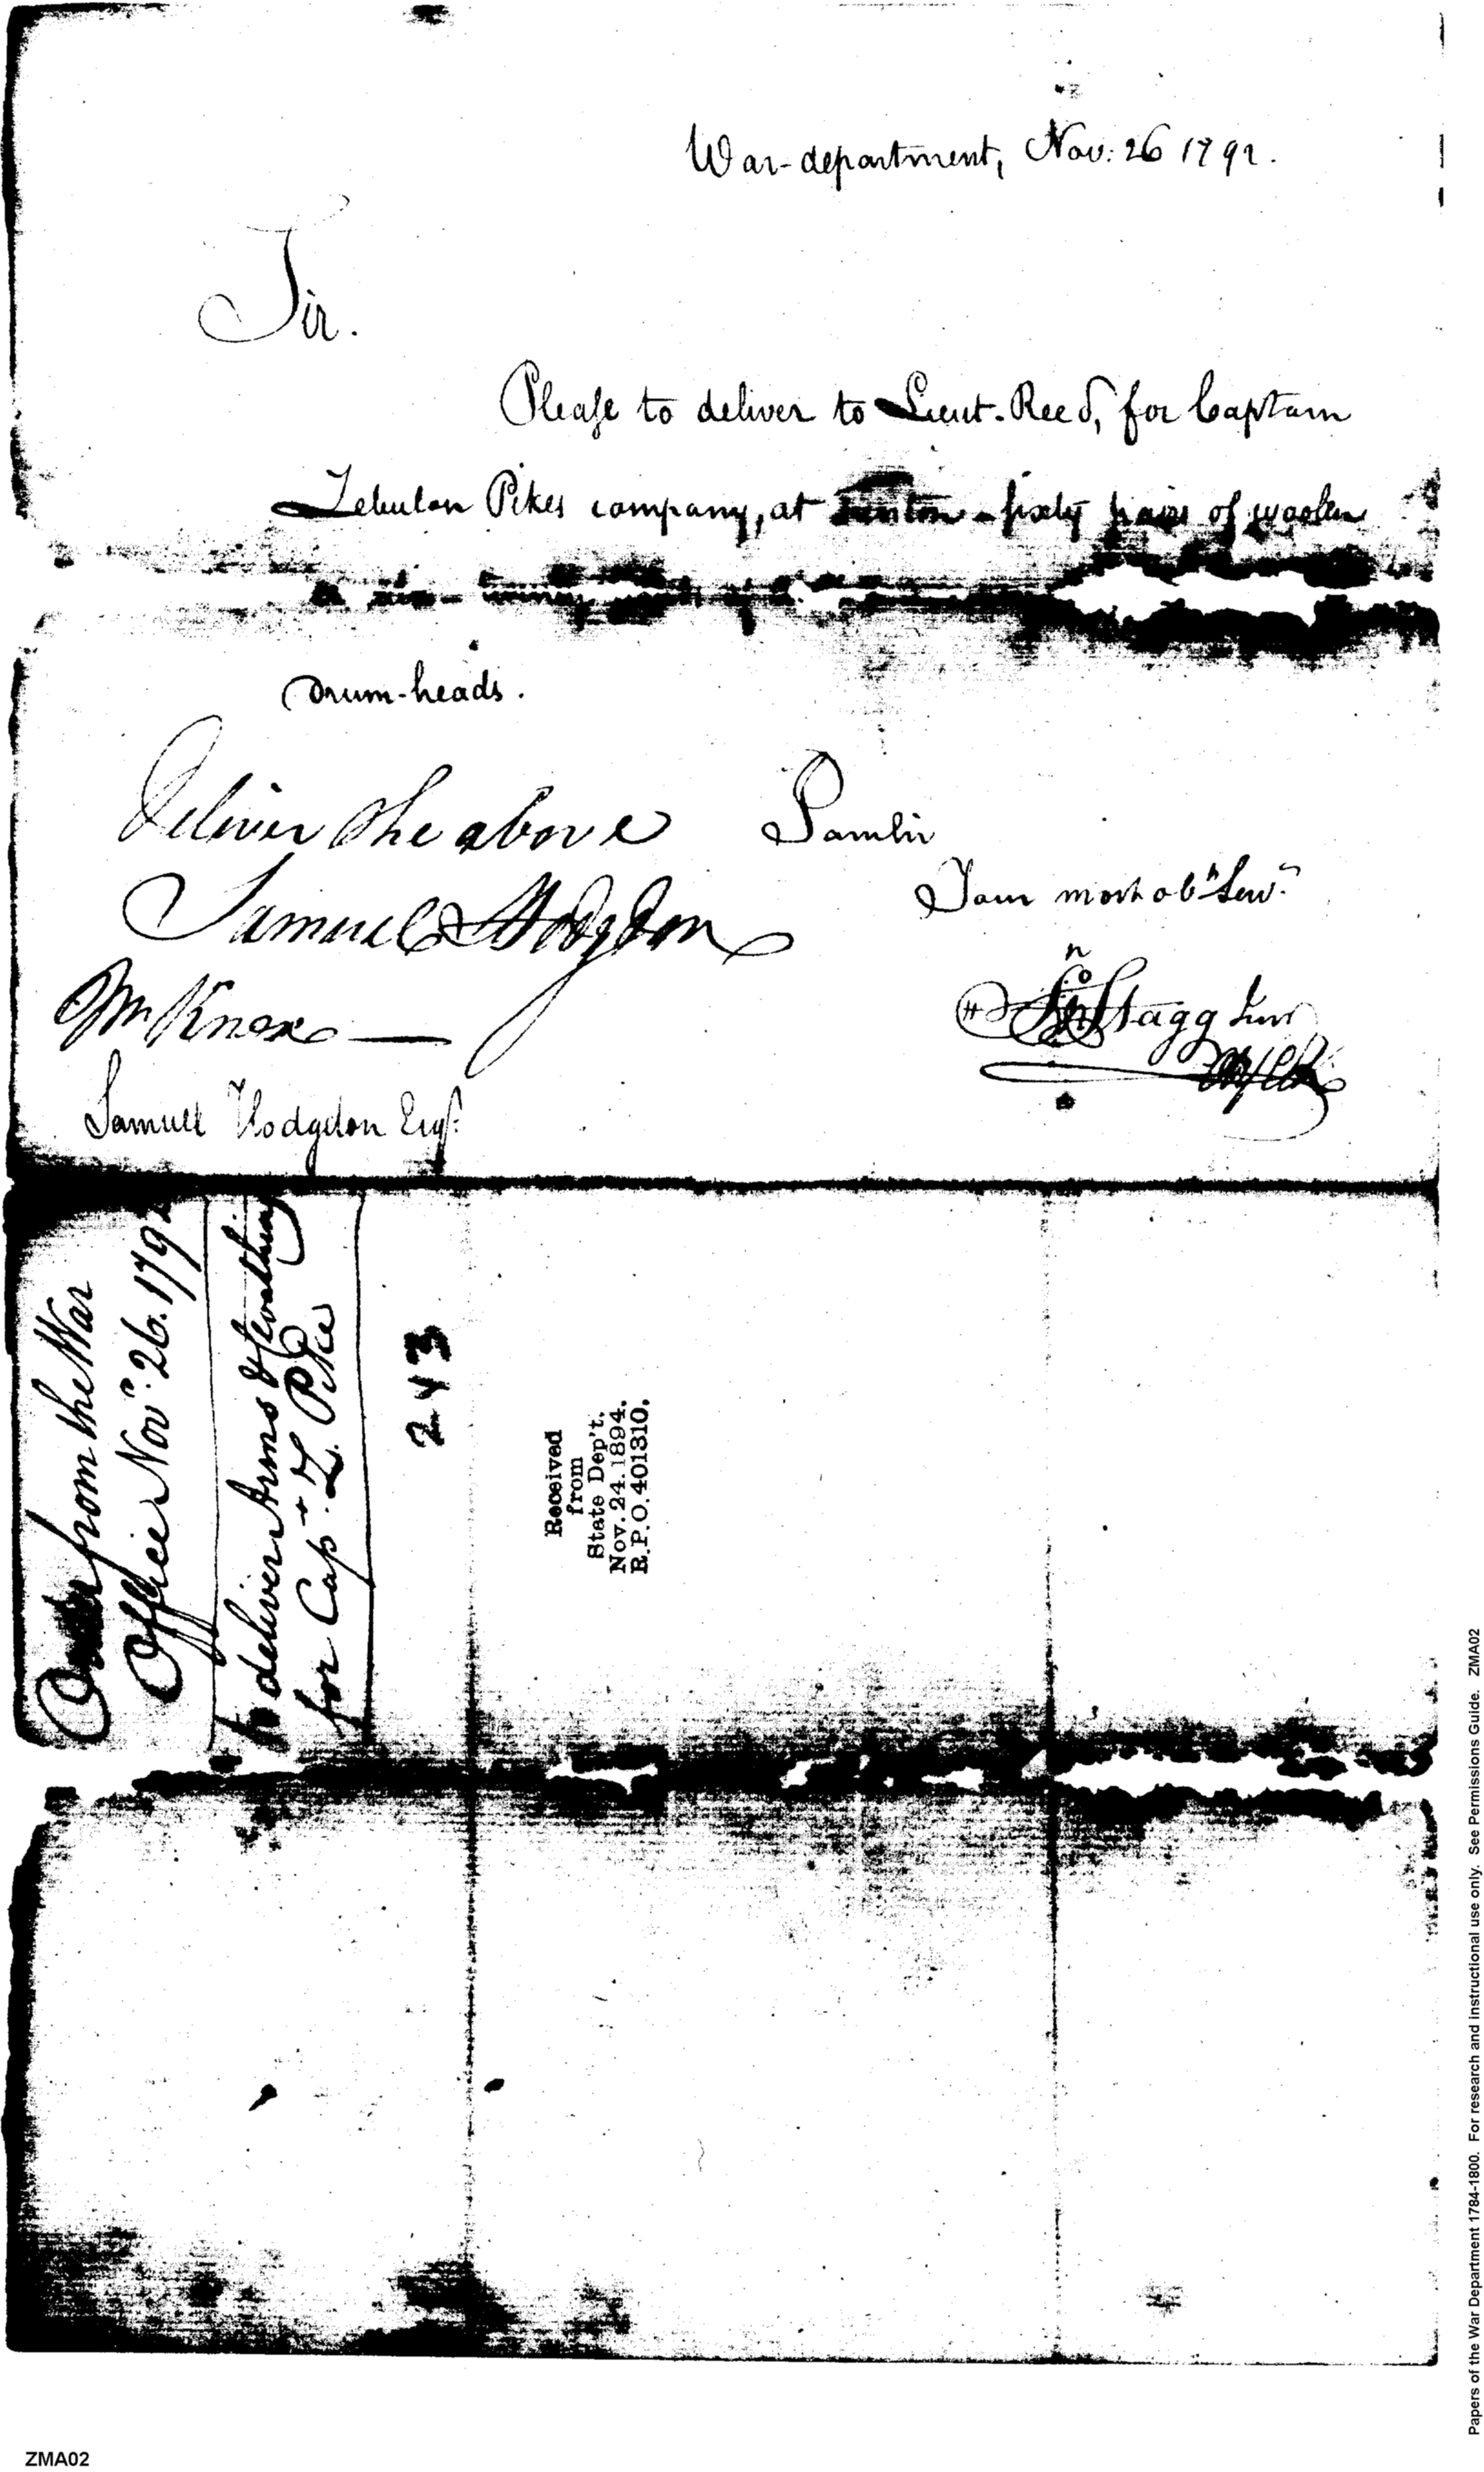 War-department, Nov: 26 1792.
Sir.
Please to deliver to Lieut. Reed, for Captain
Zebulon Pikes company, at Trenton - sixty pairs of woolen
Drum-heads.
Deliver the above
I am Sir
Samuel Hodgdon
Your most ob. Serv.
Mr Knox
Jno Stagg Junr
Samuel Hodgdon Esqr.
Order from the War
Office Novr. 26. 1792
to deliver Arms & Cloathing
for Capt. Z. Pike
243
Received
from
State Dep't.
Nov. 24. 1894.
R.P.O. 401310.
Papers of the War Department 1784-1800. For research and instructional use only. See Permissions Guide. ZMA02
ZMA02